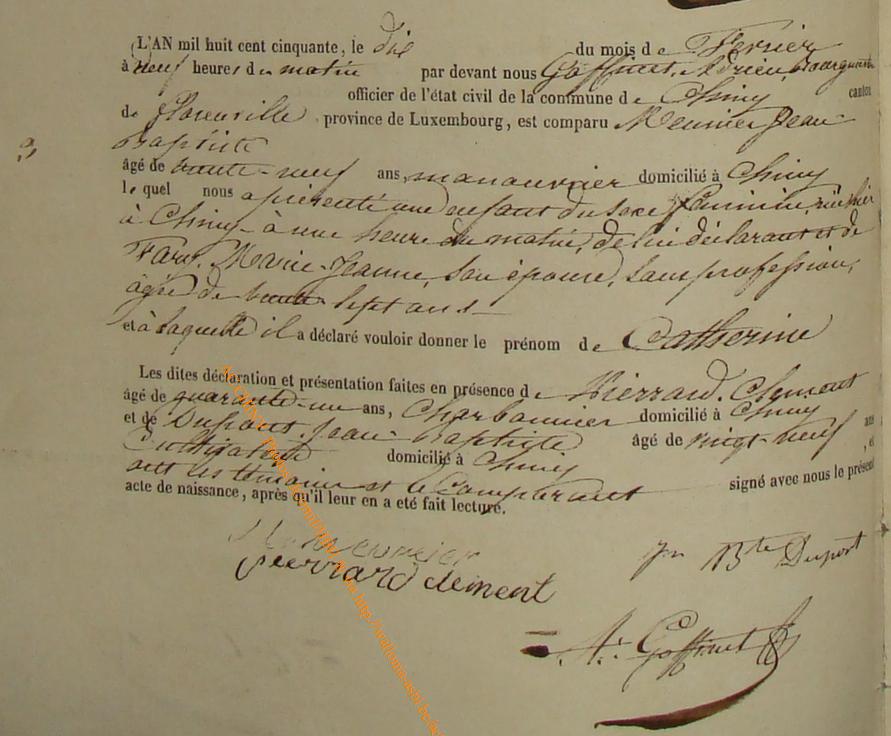 L'AN mil huit cent cinquante, le dix du mois de Fevrier
à neuf heures du matin par devant nous Goffinet, Adrien, Bourgmestre
officier de l'état civil de la commune de Chiny canton
de Florenville province de Luxembourg, est comparu Meunier Jean
Baptiste
âgé de trente-neuf ans, manouvrier domicilié à Chiny
lequel nous a présenté une enfant du sexe féminin, née hier
à Chiny à une heure du matin, de lui déclarant et de
Marie-Jeanne, son épouse, sans profession,
âgée de trente sept ans
et à laquelle il a déclaré vouloir donner le prénom de Catherine
Les dites déclaration et présentation faites en présence de Pierrard, Clement
âgé de quarante-un ans, Charbonnier domicilié à Chiny
et de Dupont, Jean Baptiste âgé de vingt-neuf ans
Cultivateur domicilié à Chiny, et
ont les témoins et le Comparant signé avec nous le présent
acte de naissance, après qu'il leur en a eté fait lecture.
Meunier
pierrard clement
Jn Bte Dupont
A. Goffinet